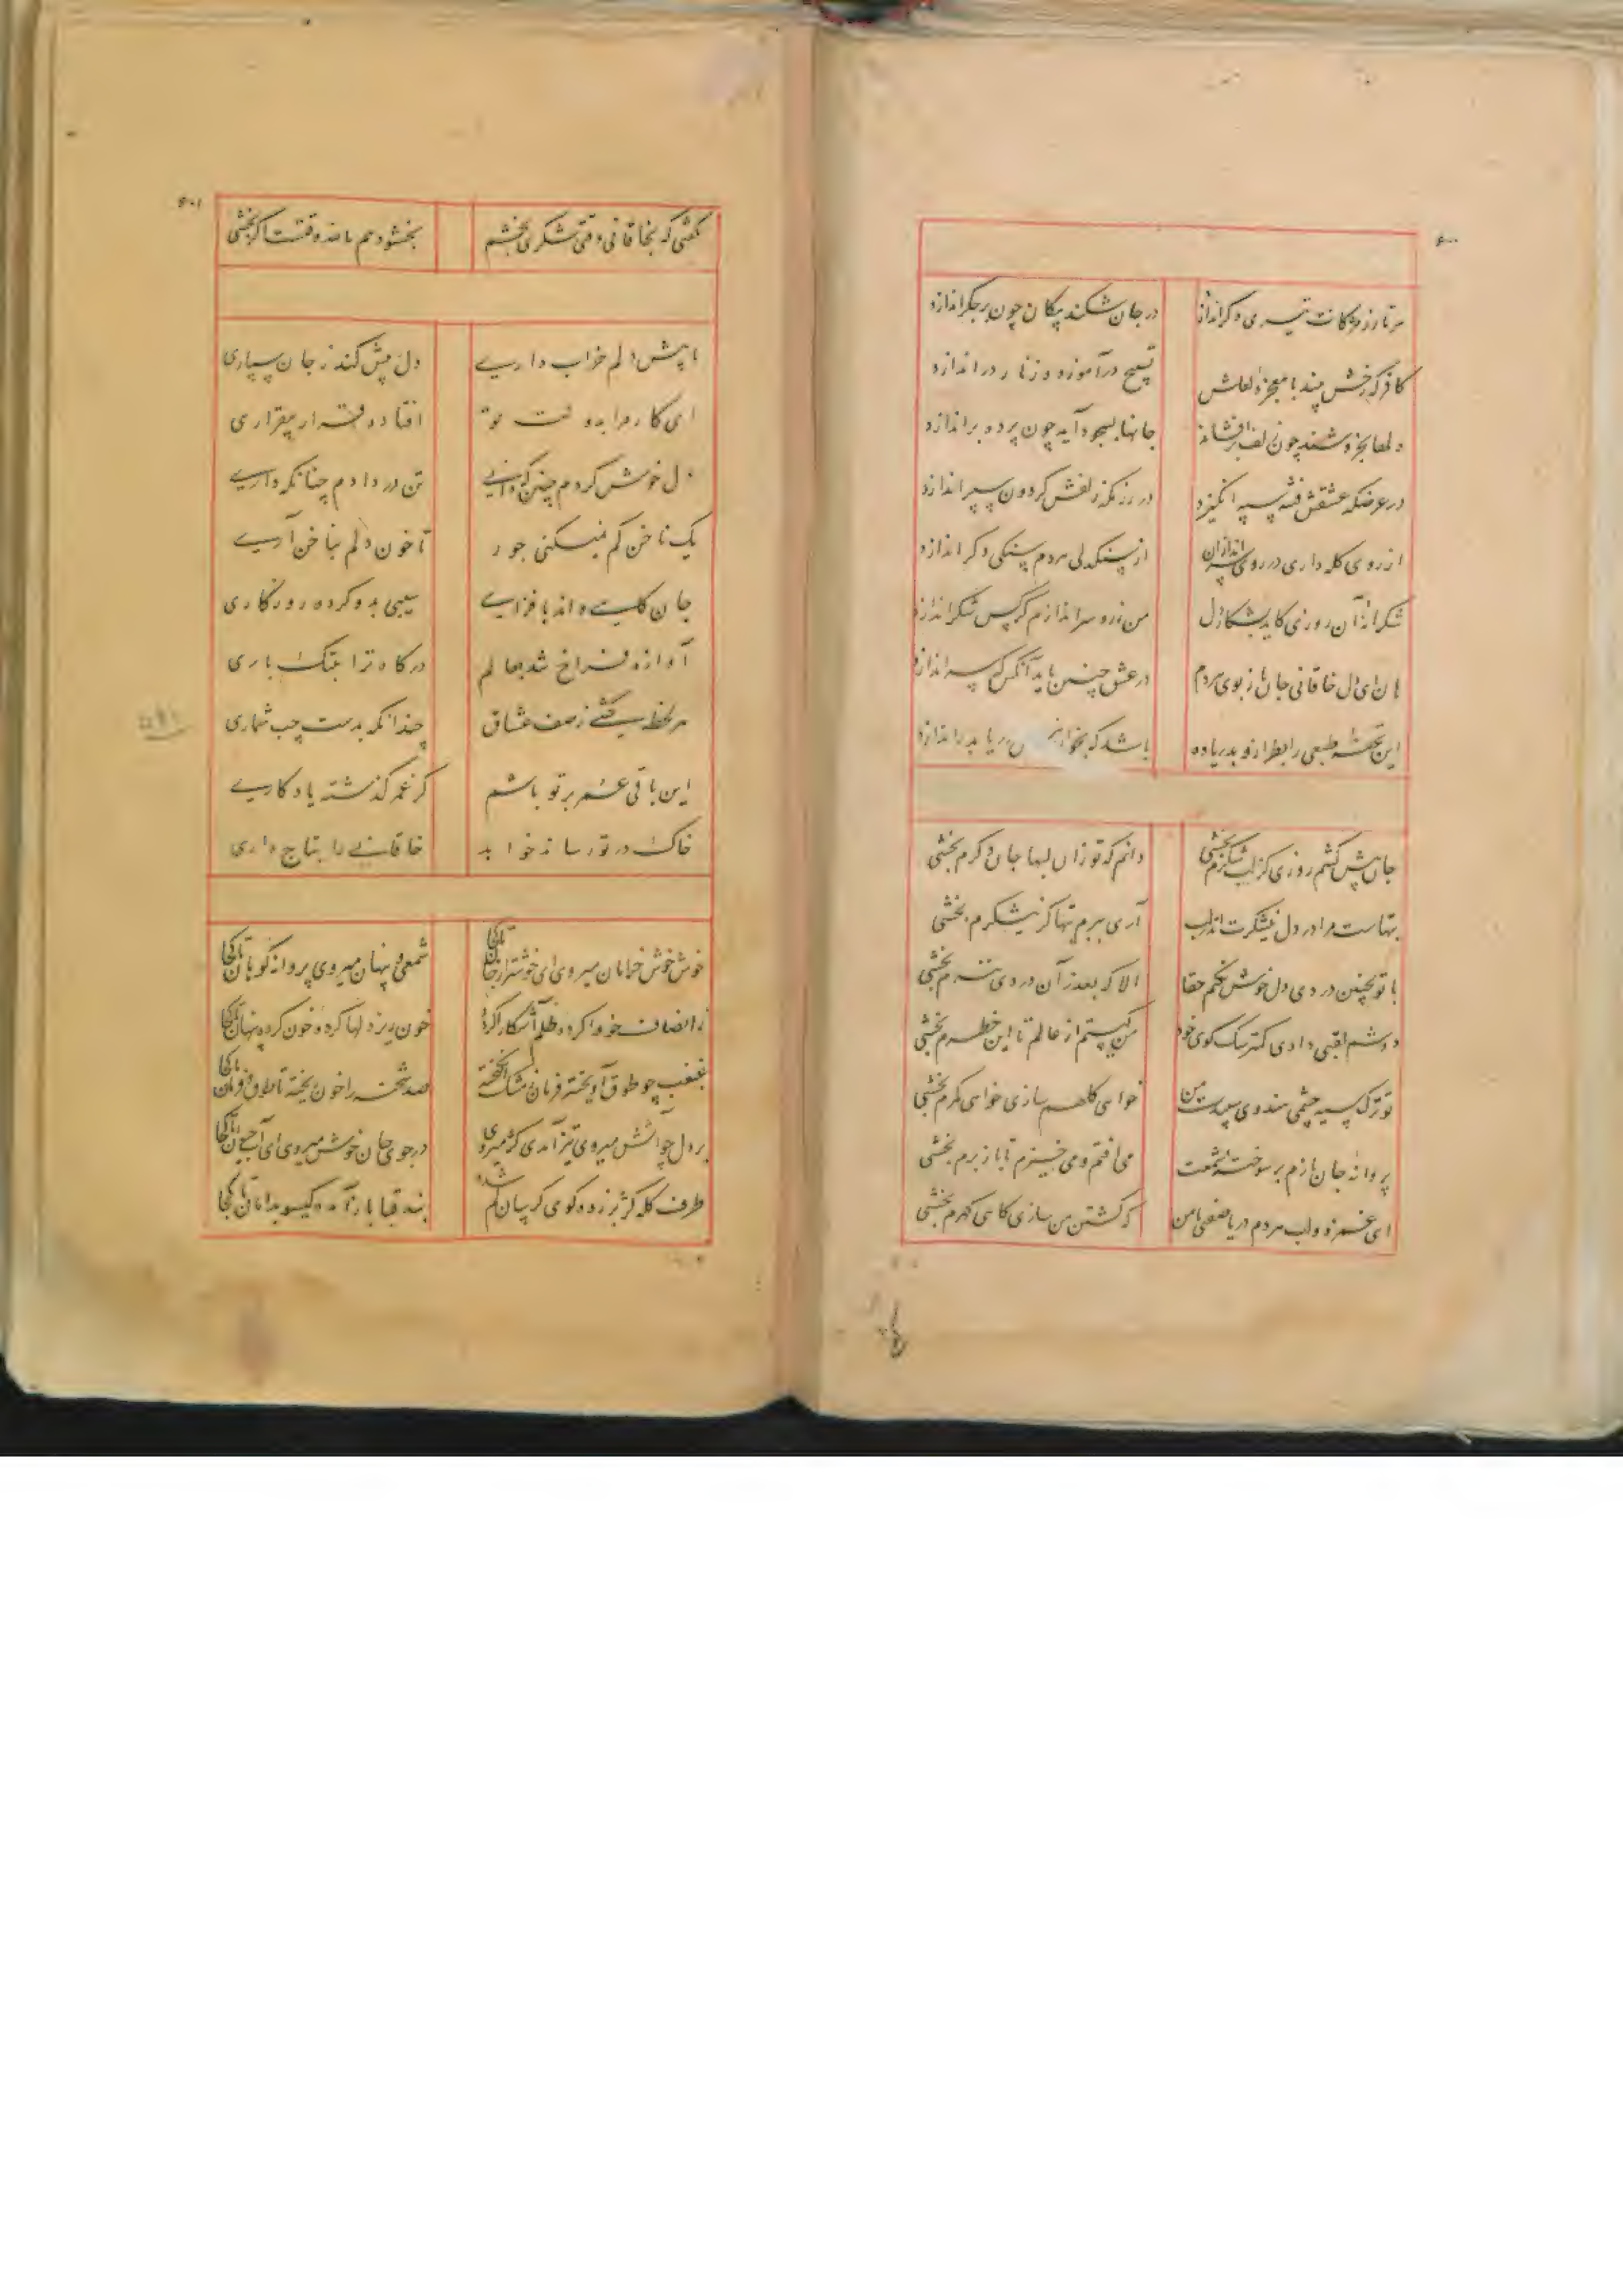 ۶۰۰
هر تار ز مژگانت تیری دگر اندازد
در جان شکند پیکان چون بر جگر اندازد
کافر که رخش بیند با معجزه لعلش
تسبیح درآموزد و زنار دراندازد
دلها بخروشند چون زلف برافشاند
جانها بسجود آید چون پرده براندازد
در عرضکه عشقش فتنه سپه انگیزد
در رزمگه زلفش گردون سپر اندازد
از روی کله داری در روی سراندازان
از سنگدلی هردم سنگی دگر اندازد
شکرانه آن روزی کاید بشکار دل
من زر و سر اندازم گر کس شکر اندازد
هان ای دل خاقانی جان باز بوی هردم
در عشق چنین باید آنکس که سر اندازد
این تحفه طبعی را بطراز و بدریا ده
باشد که بخوارزمش دریا بدر اندازد
جان پیش کشم روزی کز لب شکرم بخشی
دانم که تو زان لبها جان دگرم بخشی
تبهاست مرا در دل نیشکرت اندر لب
آری ببرم تبها گر نیشکرم بخشی
با تو بچنین دردی دل خوش نکنم حقا
الا که بعذر آن دردی بترم بخشی
دوشم لقبی دادی کمتر سگ کوی خود
من کیستم از عالم تا این خطرم بخشی
تو ترک سیه چشمی هندوی سپیدت من
خواهی کلهم سازی خواهی کمرم بخشی
پروانه جان بازم پر سوخته شمعت
می‌افتم و می‌خیزم تا باز پرم بخشی
ای غمزه و لب هردم دریا صفتی با من
گه کشتن من سازی گاهی گهرم بخشی
۶۰۱
گفتی که بخاقانی وقتی شکری بخشم
بخشودهم ماند وقتست اگر بخشی
تا پیش دلم خراب داری
دل پیش کند ز جان سپاری
ای کار مرا بدولت تو
افتاده قرار بیقراری
دل خوش کردم چنین که دانی
تن در دادم چنانکه داری
یک ناخن کم نمیکنی جور
تا خون دلم بناخن آری
جان کاست و اندهافزای
سیبی بدو کرده روزگاری
آوازه فراخ شد بعالم
درگاه ترا بتنگ باری
هر لحظه یکی ز صف عشاق
چندانکه بدست چپ شماری
این باقی عمر بر تو باشم
کز عمر گذشته یادگاری
خاک در تو رساند خواهد
خاقانی را بتاج داری
خوش خوش خرامان میروی ای خوشتر از جان تا کجا
شمعی و پنهان میروی پروانه گویان تا کجا
ز انصاف خو واکرده ظلم آشکارا کرده
خون ریز دلها کرده خون کرده پنهان تا کجا
غبغب چو طوق آویخته فرمان ز مشک انگیخته
صد شحنه را خون ریخته با طوق و فرمان تا کجا
بر دل چو آتش میروی تیز آمدی کژ میروی
در جوی جان خوش میروی ای آب حیوان تا کجا
طرف کله کژ بر زده گوی گریبان گم شده
بند قبا باز آمده گیسو بدامان تا کجا